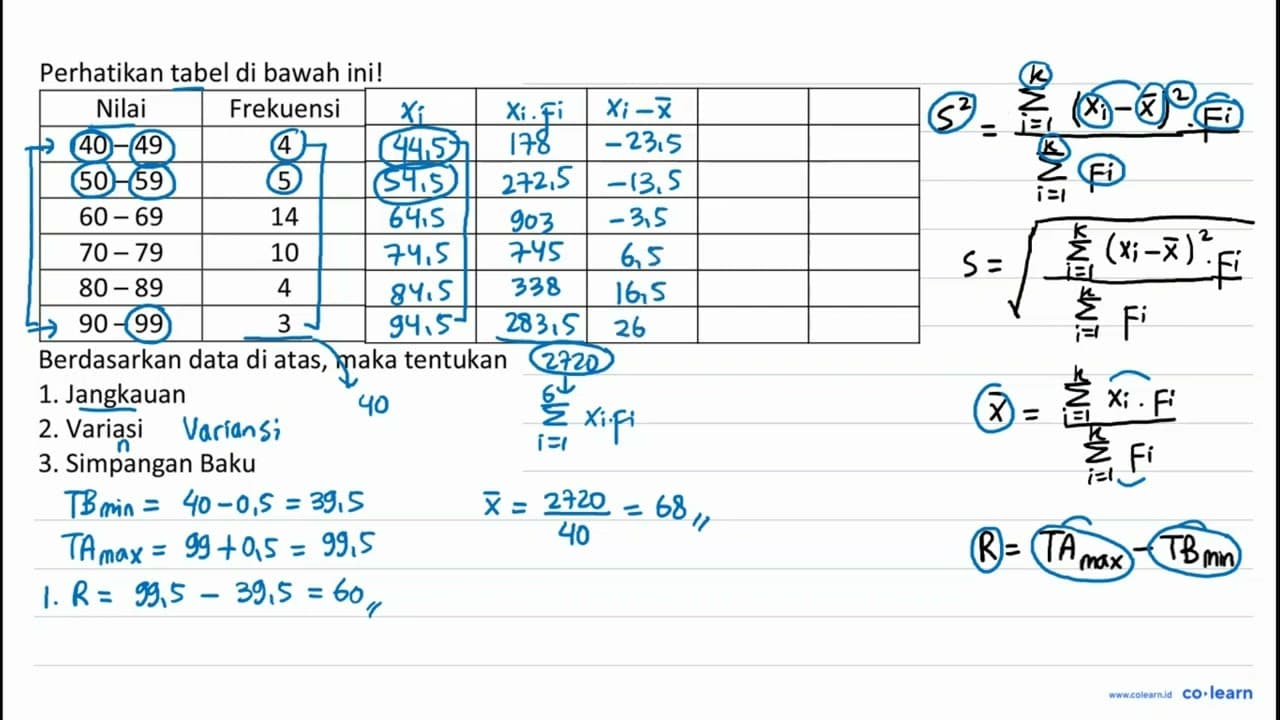 Perhatikan tabel di bawah ini!
Nilai Frekuensi xi xi.fi xi-x̄
40 – 49 4 44,5 178 -23,5
50 – 59 5 54,5 272,5 -13,5
60 – 69 14 64,5 903 -3,5
70 – 79 10 74,5 745 6,5
80 – 89 4 84,5 338 16,5
90 – 99 3 94,5 283,5 26
Berdasarkan data di atas, maka tentukan 2720
1. Jangkauan 40
6 Σ i=1 xi.fi
2. Variasi n Variansi
3. Simpangan Baku
TBmin = 40-0,5 = 39,5
TAmax = 99+0,5 = 99,5
1. R = 99,5 - 39,5 = 60,,
x̄ = 2720/40 = 68,,
S² = k Σ i=1 (xi-x̄)².Fi / k Σ i=1 Fi
S = √ k Σ i=1 (xi-x̄)².Fi / k Σ i=1 Fi
x̄ = k Σ i=1 xi.Fi / k Σ i=1 Fi
R = TAmax - TBmin
www.colearn.id co·learn